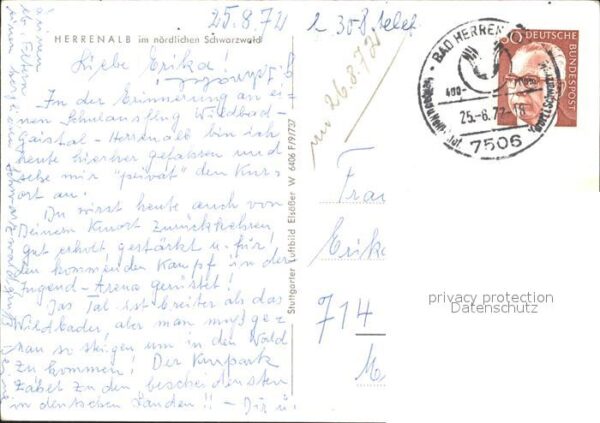 25.8.72
HERRENALB im nördlichen Schwarzwald
Liebe Erika!
In der Erinnerung an
einen Schulausflug Wildbad-
Gaistal-Herrenalb bin ich
heute hierher gefahren und
sehe mir "privat" den Kur-
ort an.
Du wirst heute auch von
Deinem Kurort zurückkehren,
gut erholt, gestärkt u. für
den kommenden Kampf in der
Jugend-Arena gerüstet!
Das Tal ist breiter als das
Wildbader, aber man muß ge-
nau so steigen um in den Wald
zu kommen! Der Kurpark
zählt zu den bescheidensten
in deutschen Landen!! - Dir u.
Stuttgarter Luftbild Elsäßer W 6406 F/9/737
26.8.72
DEUTSCHE
BUNDESPOST
BAD HERREN
400-
25.-8.72-18
7506
Frau
Erika
714
M
privacy protection
Datenschutz